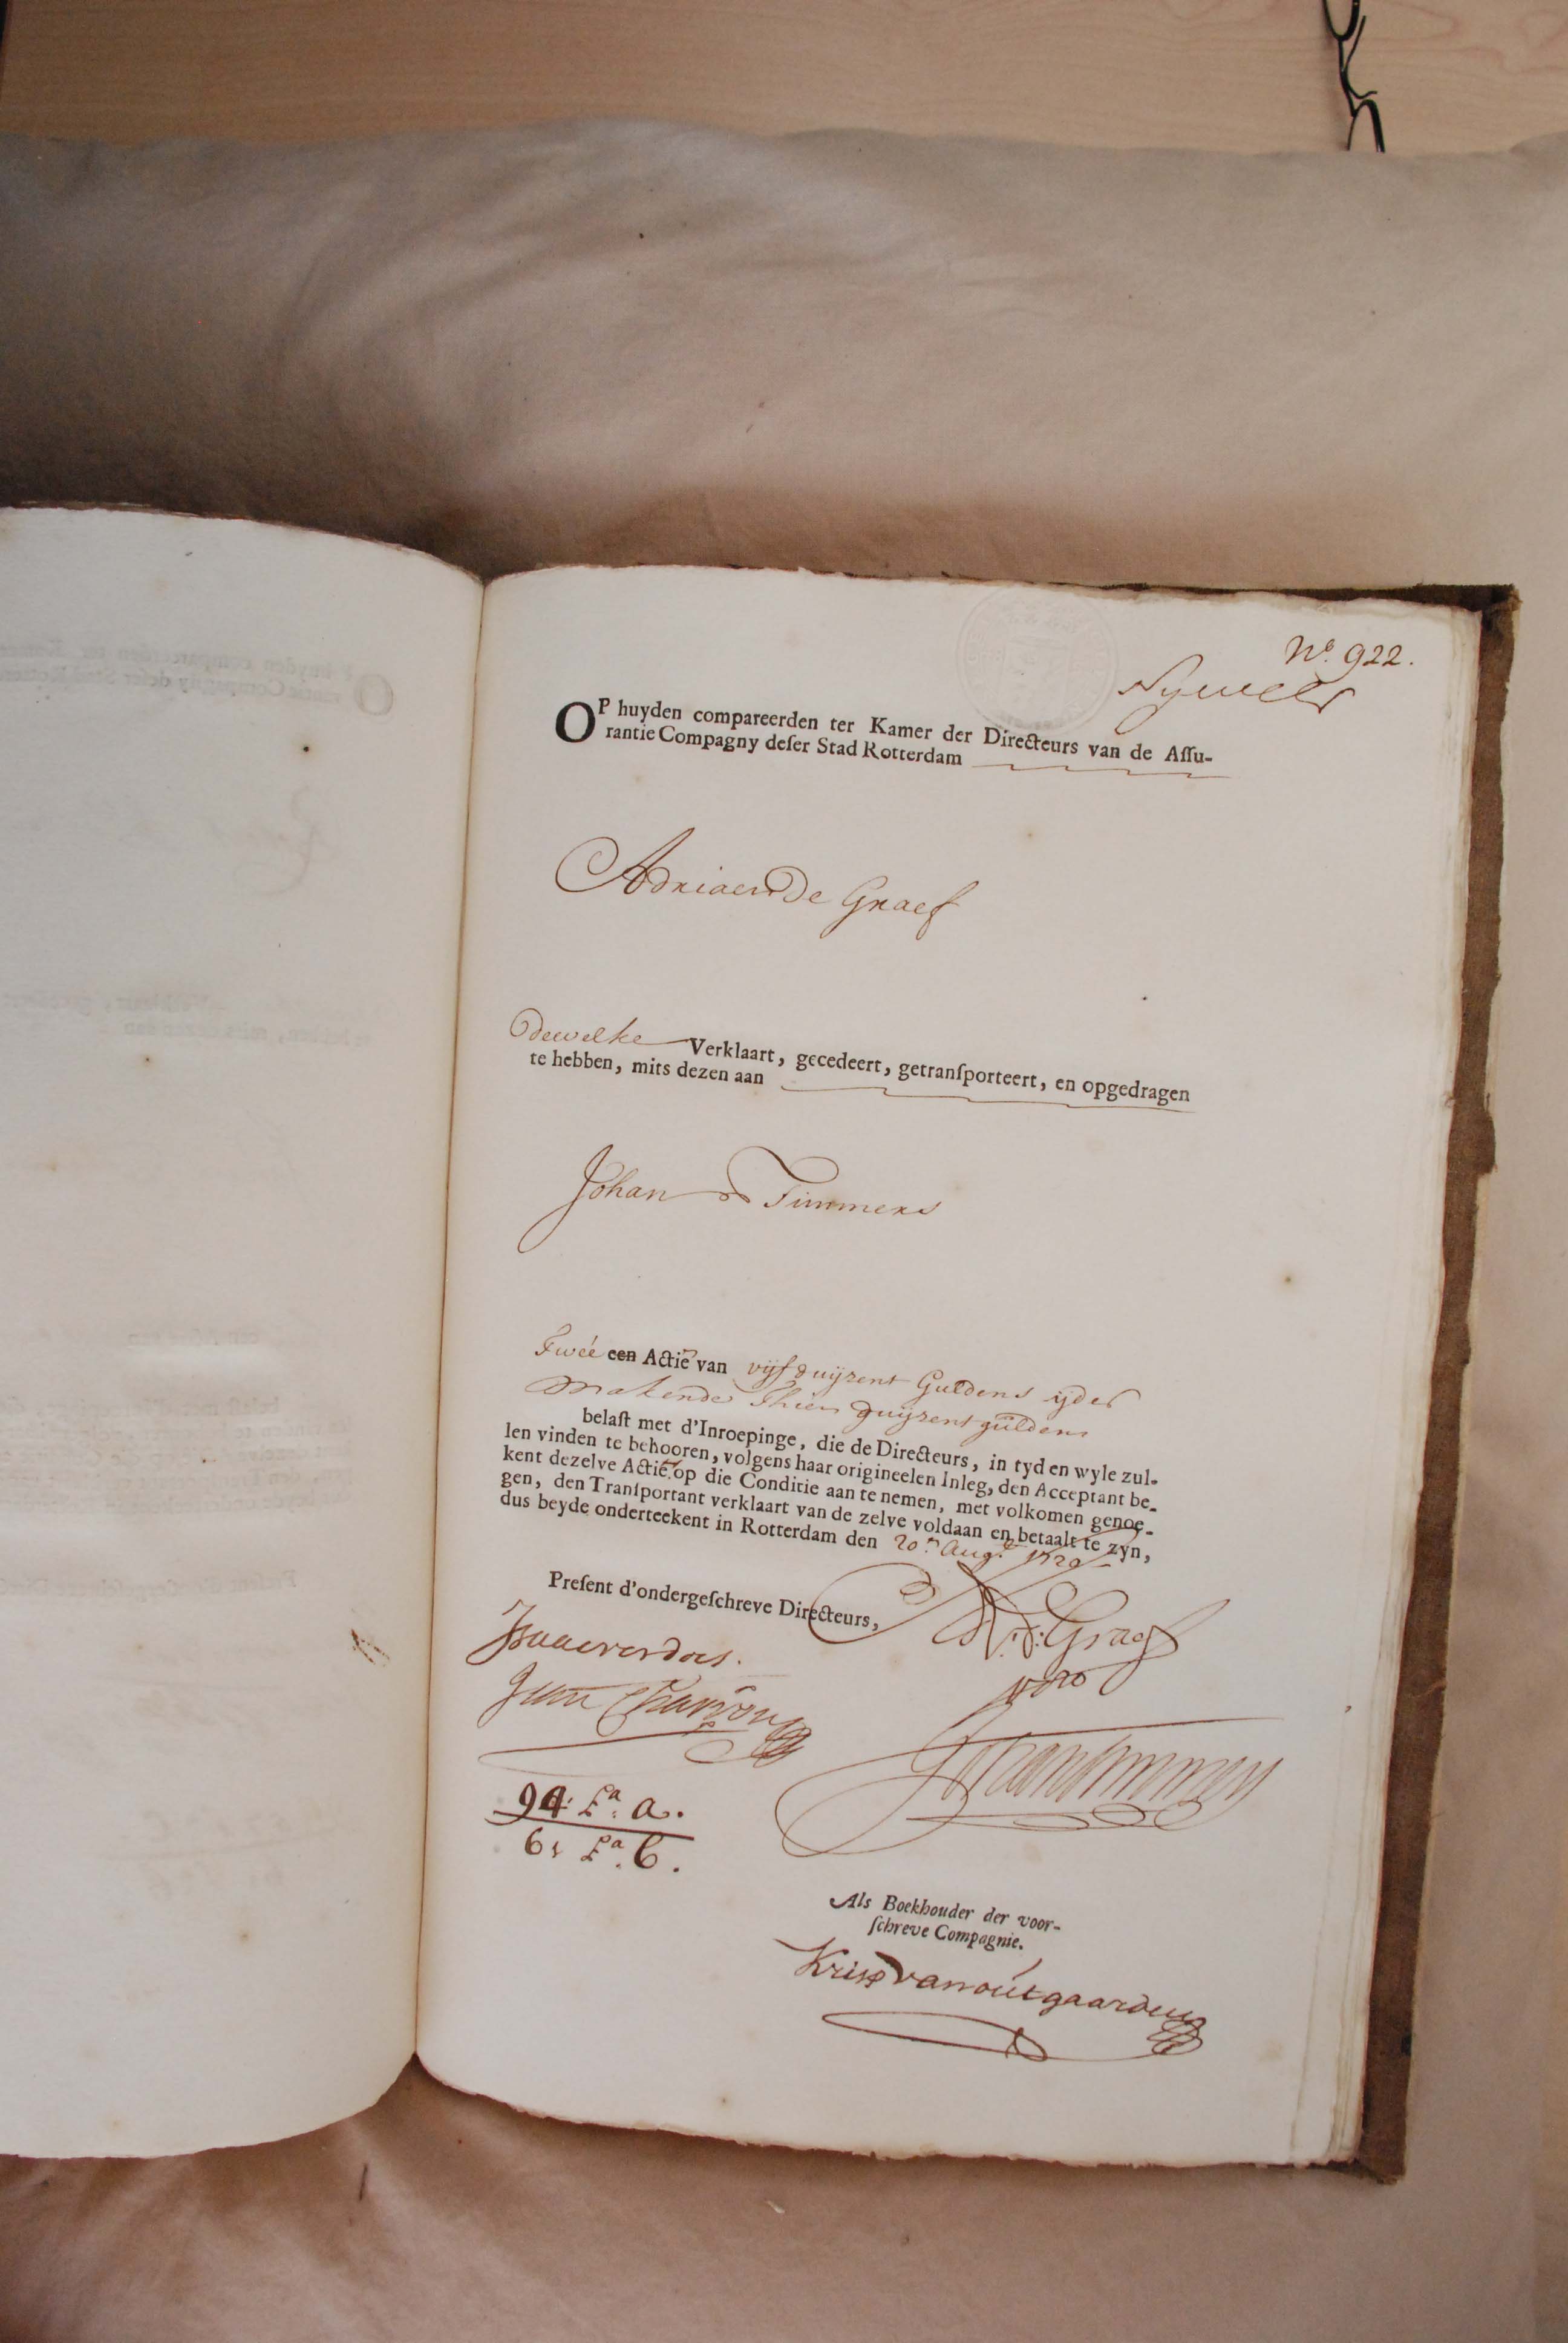 No. 922.
OP huyden compareerden ter Kamer der Directeurs van de Assu-
rantie Compagny deser Stad Rotterdam
Adriaen De Graef
Dewelke Verklaart, gecedeert, getransporteert, en opgedragen
te hebben, mits dezen aan
Johan Timmers
Twée een Actie van vijfduijzent Guldens ijder
makende Thien duijzent guldens
belast met d'Inroepinge, die de Directeurs, in tyd en wyle zul-
len vinden te behooren, volgens haar origineelen Inleg, den Acceptant be-
kent dezelve Actie op die Conditie aan te nemen, met volkomen genoe-
gen, den Transportant verklaart van de zelve voldaan en betaalt te zyn,
dus beyde onderteekent in Rotterdam den 20en Augt 1720
Present d'ondergeschreve Directeurs,
A. D: Graef
Johan Timmers
94 Fa. a.
61 Fa. b.
Als Boekhouder der voor-
schreve Compagnie.
Krisp van outgaarden